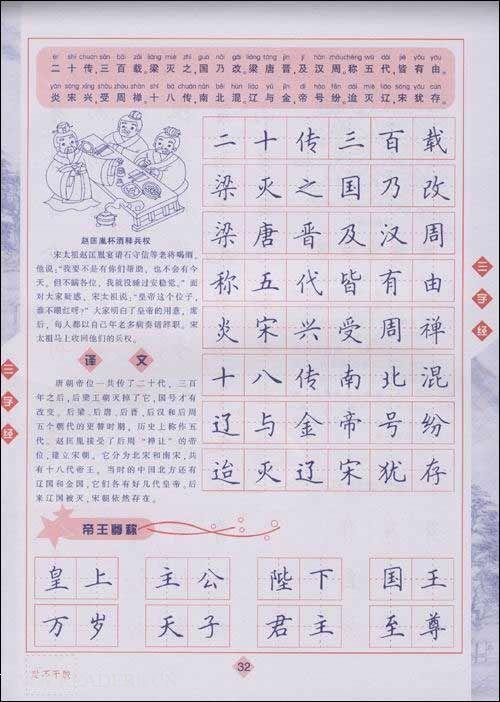 èr shí chuán sān bǎi zǎi liáng miè zhī guó nǎi gǎi liáng táng jìn jí hàn zhōu chēng wǔ dài jiē yǒu yóu
二十传,三百载,梁灭之,国乃改。梁唐晋,及汉周。称五代,皆有由。
yán sòng xīng shòu zhōu shàn shí bā chuán nán běi hùn liáo yǔ jīn dì hào fēn dài miè liáo sòng yóu cún
炎宋兴,受周禅,十八传,南北混。辽与金,帝号纷。迨灭辽,宋犹存。
赵匡胤杯酒释兵权
宋太祖赵匡胤宴请石守信等老将喝酒。
他说:“我要不是有你们帮助,也不会有今
天,但不瞒各位,我就没睡过安稳觉。”面
对大家疑惑,宋太祖说:“皇帝这个位子,
谁不眼红呀?”大家明白了皇帝的用意,席
后,每人都以自己年老多病奏请辞职。宋
太祖马上收回他们的兵权。
译文
唐朝帝位一共传了二十代,三百
年之后,后梁王朝灭掉了它,国号才有
改变。后梁、后唐、后晋、后汉和后周
五个朝代的更替时期,历史上称作五
代。赵匡胤接受了后周“禅让”的帝
位,建立宋朝。它分为北宋和南宋,共
有十八代帝王。当时的中国北方还有
辽国和金国,它们各有好几代皇帝。后
来辽国被灭,宋朝依然存在。
二十传三百载
梁灭之国乃改
梁唐晋及汉周
称五代皆有由
炎宋兴受周禅
十八传南北混
辽与金帝号纷
迨灭辽宋犹存
三字经
三字经
帝王尊称
皇上 主公 陛下 国王
万岁 天子 君主 至尊
32